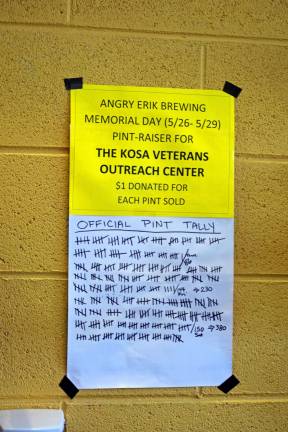 ANGRY ERIK BREWING
MEMORIAL DAY (5/26- 5/29)
PINT-RAISER FOR
THE KOSA VETERANS
OUTREACH CENTER
$1 DONATED FOR
EACH PINT SOLD
OFFICIAL PINT TALLY
→230
150
→380